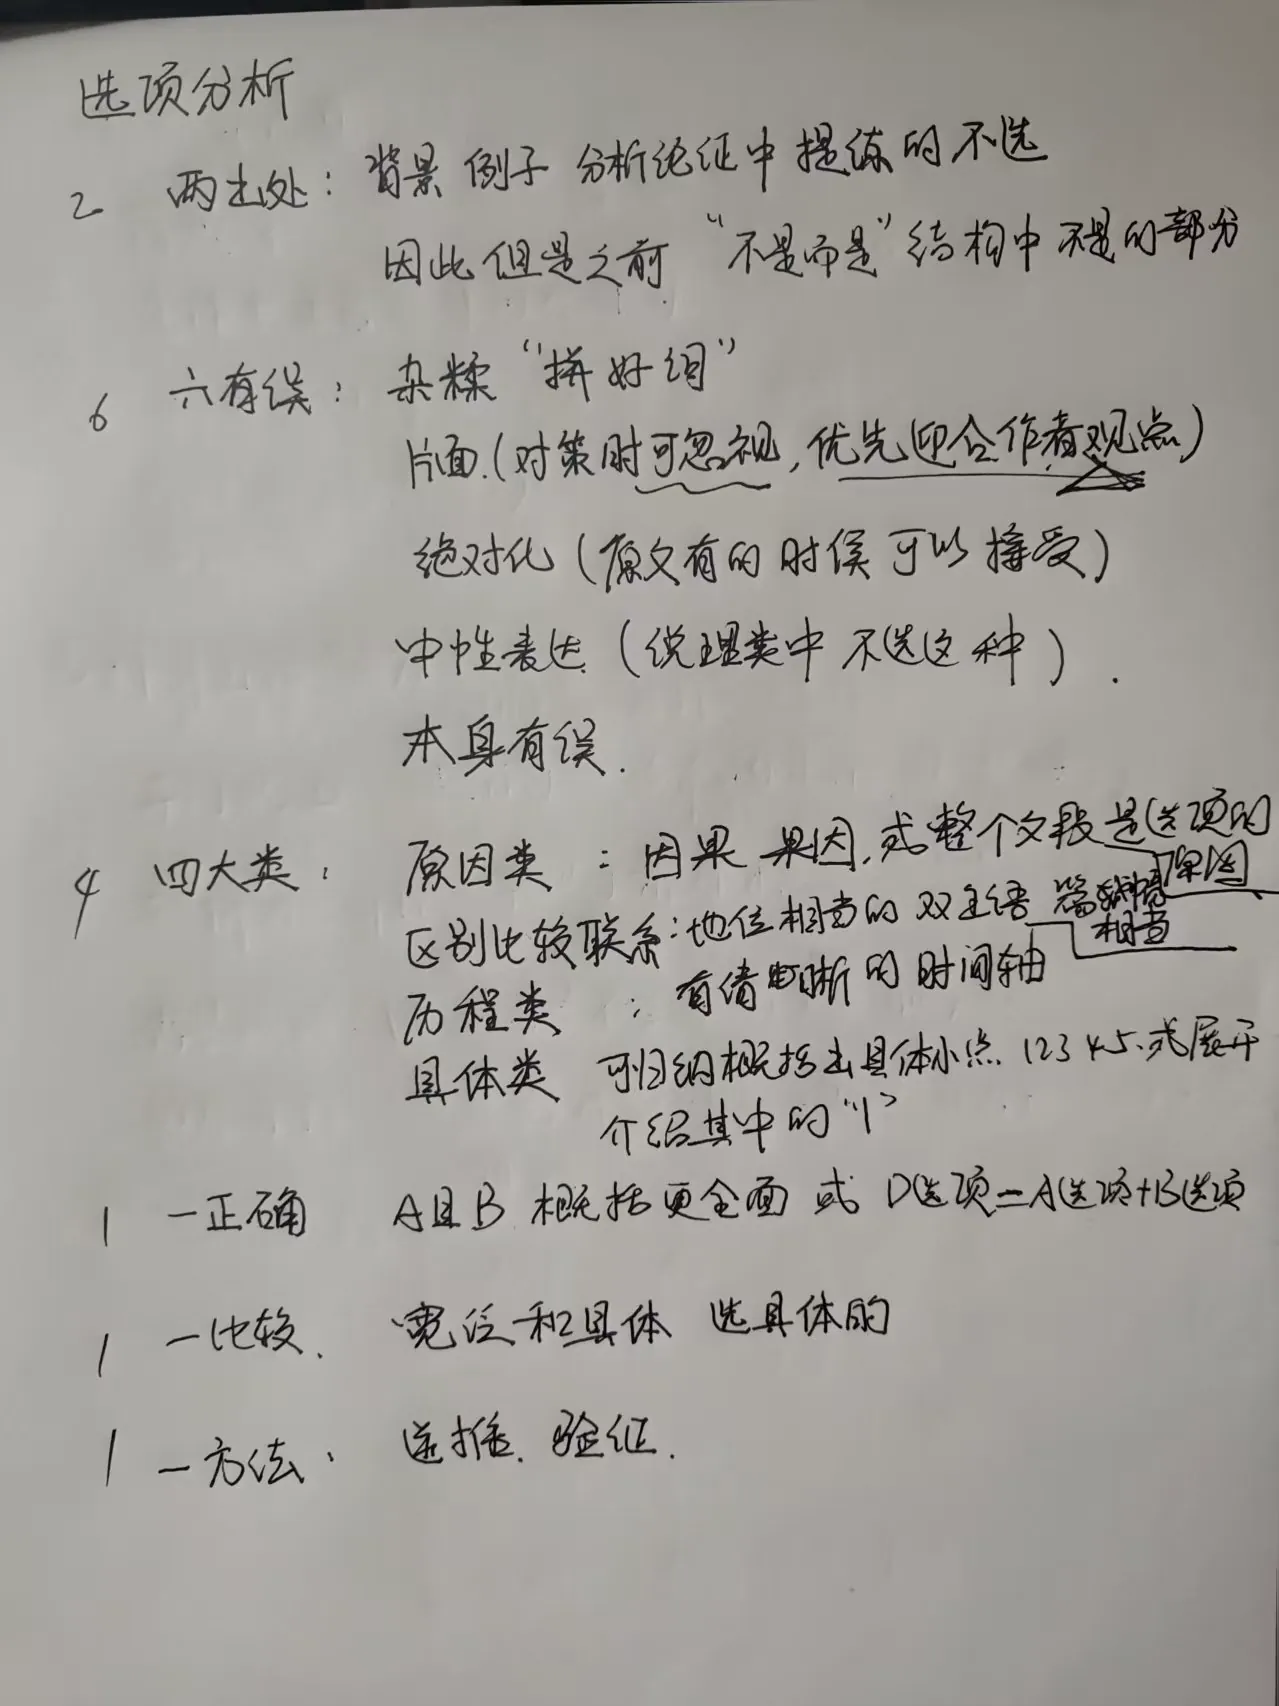 选项分析
2 两出处：背景 例子 分析论证中提炼的不选
因此但是之前 “不是而是”结构中不是的部分
6 六有误：杂糅“拼好词”
片面.(对策时可忽视,优先迎合作者观点)
绝对化(原文有的时候可以接受)
中性表达.(说理类中 不选这种).
本身有误.
4 四大类：原因类：因果 果因,或整个文段是选项的
原因
区别比较联系:地位相当的双主语 篇幅
相当
历程类：有清晰的时间轴
具体类 可归纳概括出具体小点.12345.或展开
介绍其中的“1”
1 一正确 A且B 概括更全面 或 D选项=A选项+B选项
1 一比较. 宽泛和具体 选具体的
1 一方法： 递推. 验证.